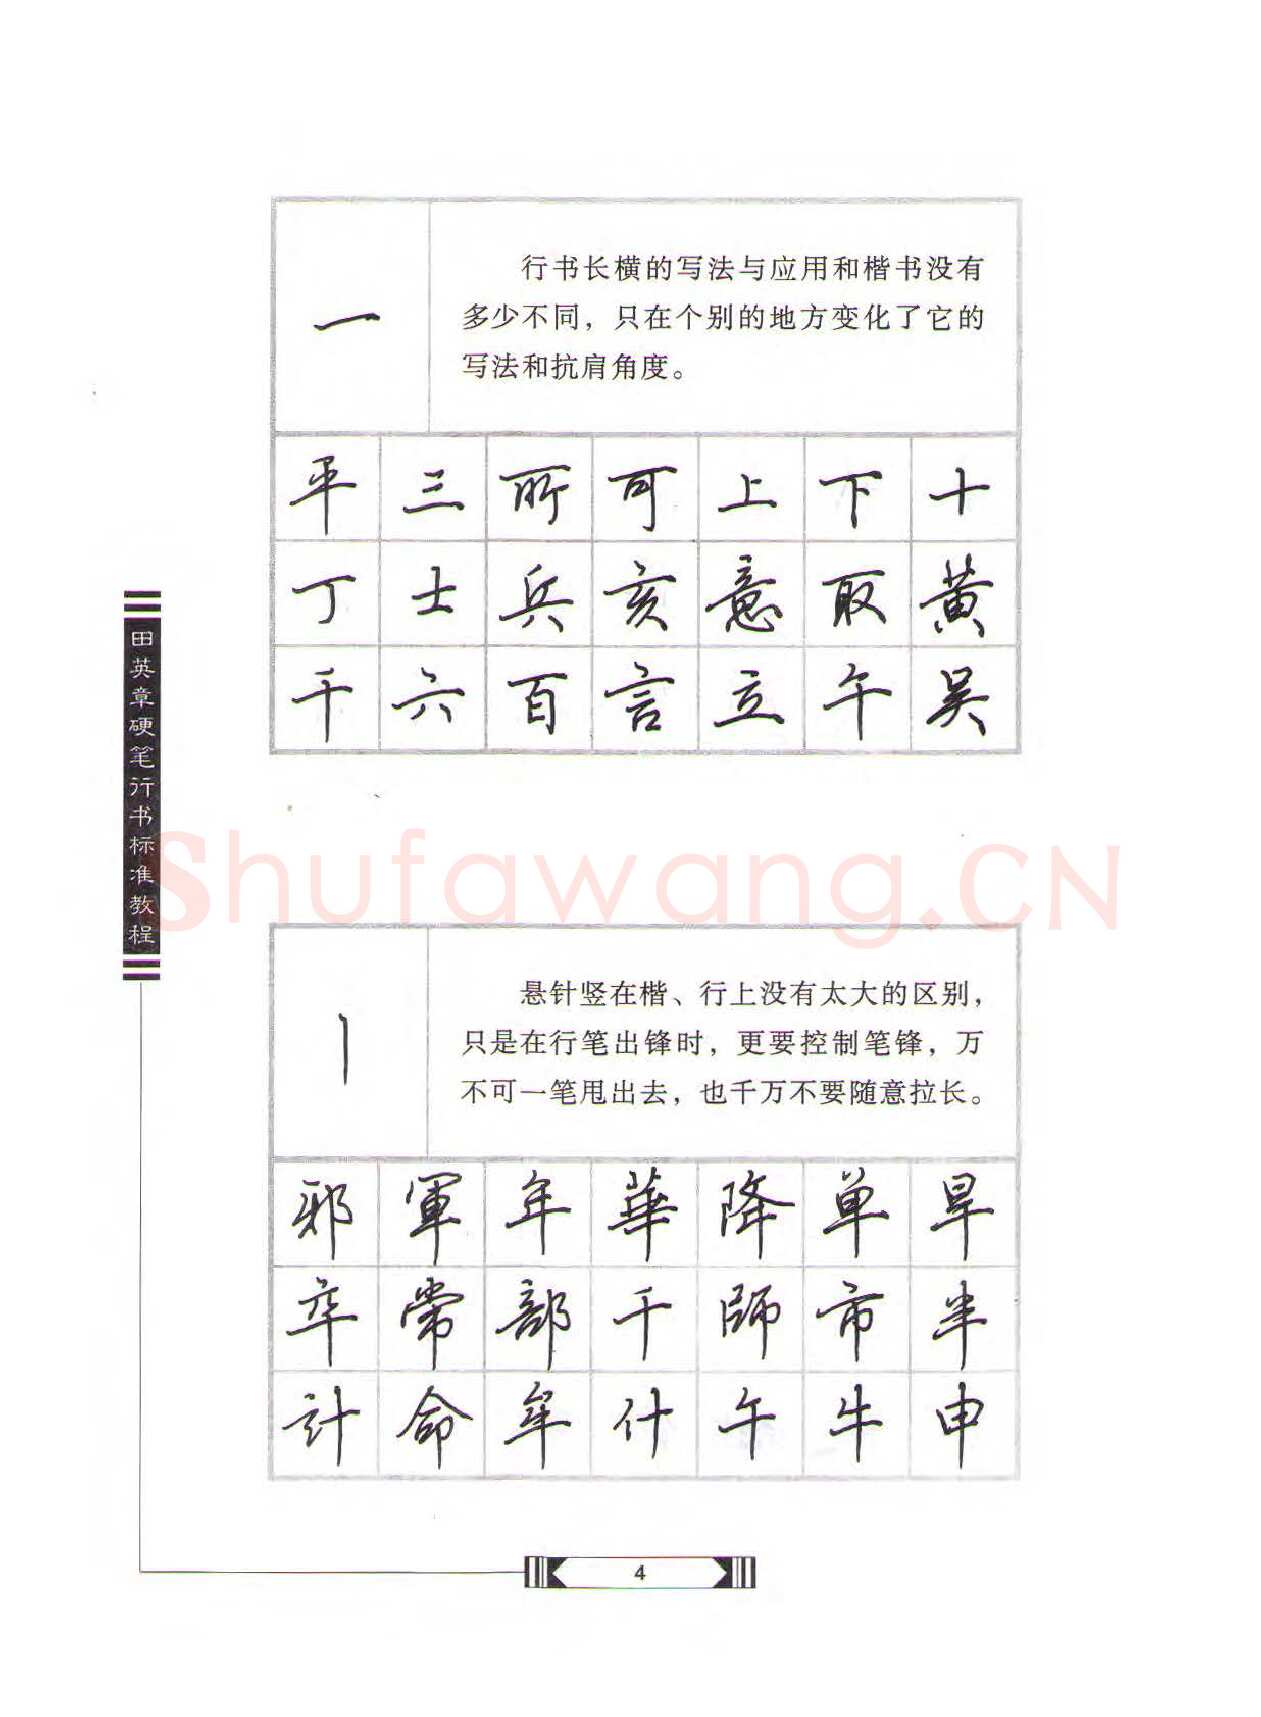 一
行书长横的写法与应用和楷书没有
多少不同，只在个别的地方变化了它的
写法和抗肩角度。
平 三 所 可 上 下 十
丁 士 兵 亥 意 取 黄
千 六 百 言 立 午 吴
田英章硬笔行书标准教程
Shufawang.CN
丨
悬针竖在楷、行上没有太大的区别，
只是在行笔出锋时，更要控制笔锋，万
不可一笔甩出去，也千万不要随意拉长。
邪 軍 年 華 降 单 旱
卒 常 部 千 師 市 半
計 命 牟 什 午 牛 申
4